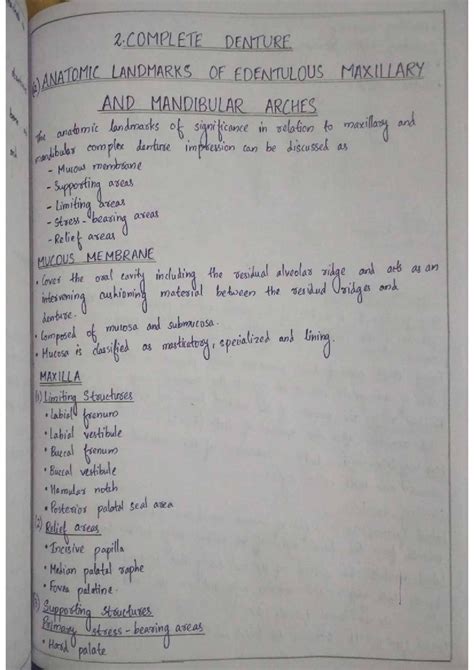 2. COMPLETE DENTURE
(a) ANATOMIC LANDMARKS OF EDENTULOUS MAXILLARY
AND MANDIBULAR ARCHES
The anatomic landmarks of significance in relation to maxillary and
mandibular complex denture impression can be discussed as
- Mucous membrane
- Supporting areas
- Limiting areas
- Stress-bearing areas
- Relief areas
MUCOUS MEMBRANE
• Cover the oral cavity including the residual alveolar ridge and acts as an
intervening cushioning material between the residual ridges and
denture.
• Composed of mucosa and submucosa.
• Mucosa is classified as masticatory, specialized and lining.
MAXILLA
(1) Limiting Structures
• Labial frenum
• Labial vestibule
• Buccal frenum
• Buccal vestibule
• Hamular notch
• Posterior palatal seal area
(2) Relief areas
• Incisive papilla
• Median palatal raphe
• Fovea palatine.
(3) Supporting Structures
Primary stress-bearing areas
• Hard palate